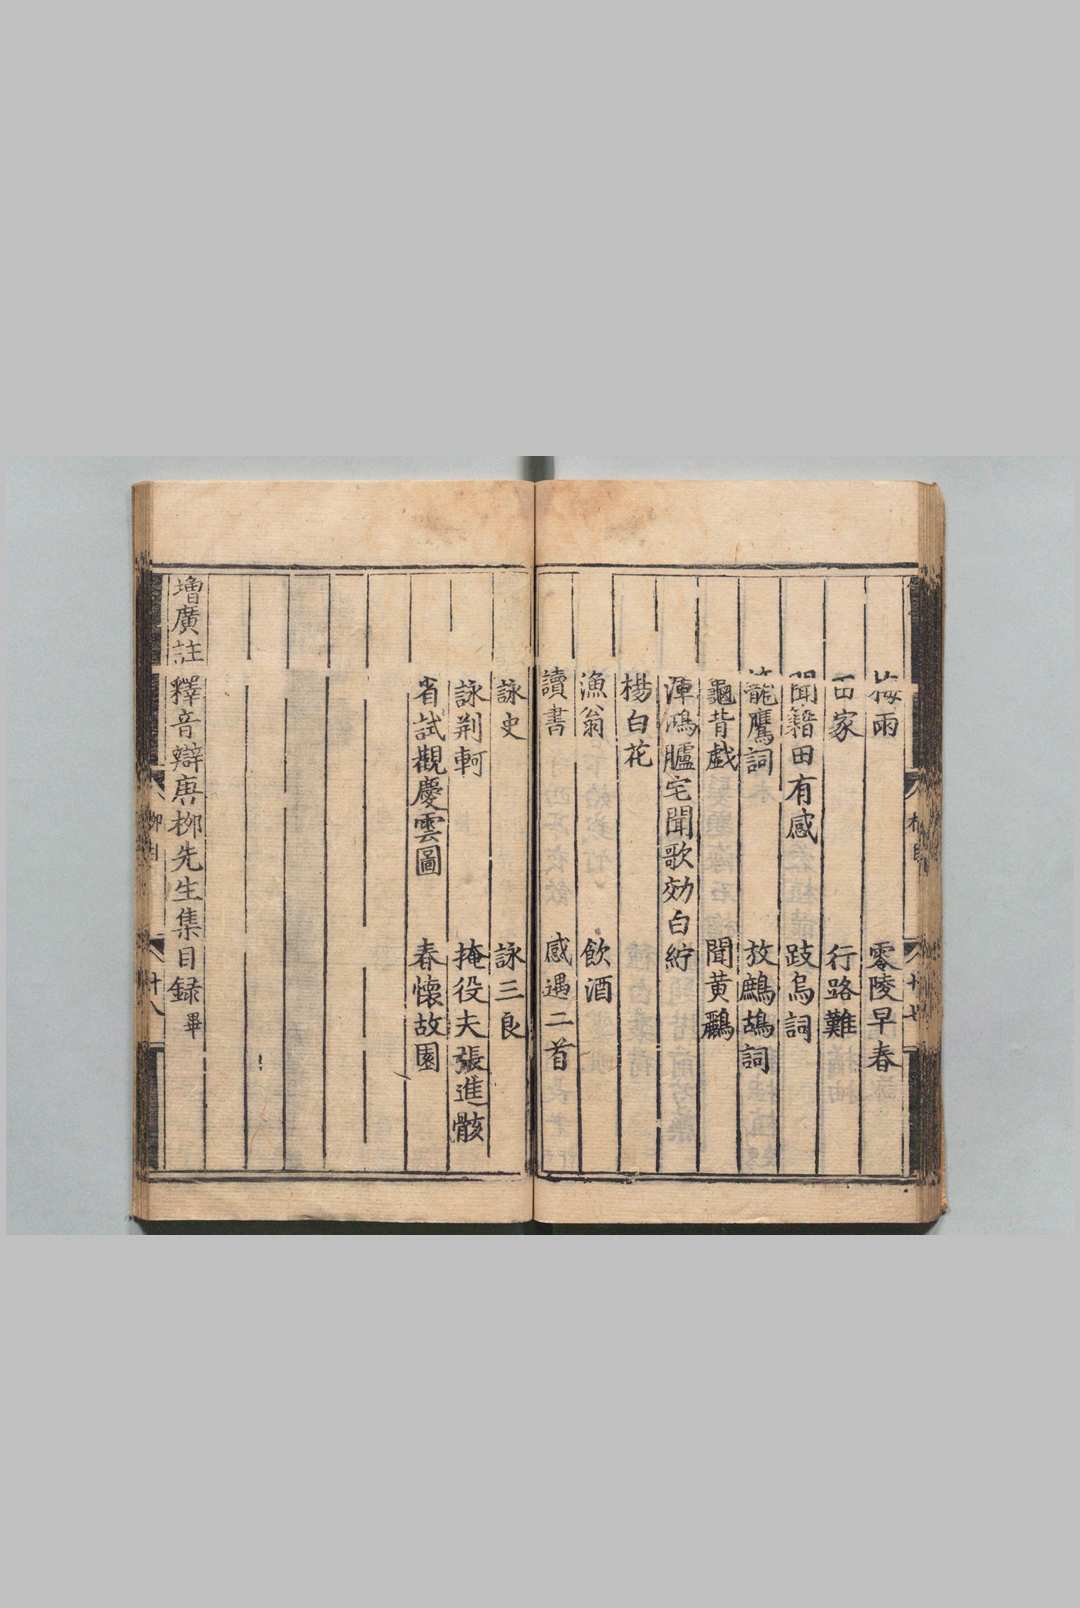 梅雨　零陵早春
田家　行路難
聞籍田有感　跂烏詞
籠鷹詞　放鷓鴣詞
龜背戲　聞黃鸝
渾鴻臚宅聞歌効白紵
楊白花
漁翁　飲酒
讀書　感遇二首
詠史　詠三良
詠荆軻　掩役夫張進骸
省試觀慶雲圖　春懷故園
增廣註釋音辯唐柳先生集目録畢
柳目　十七
柳目　十八